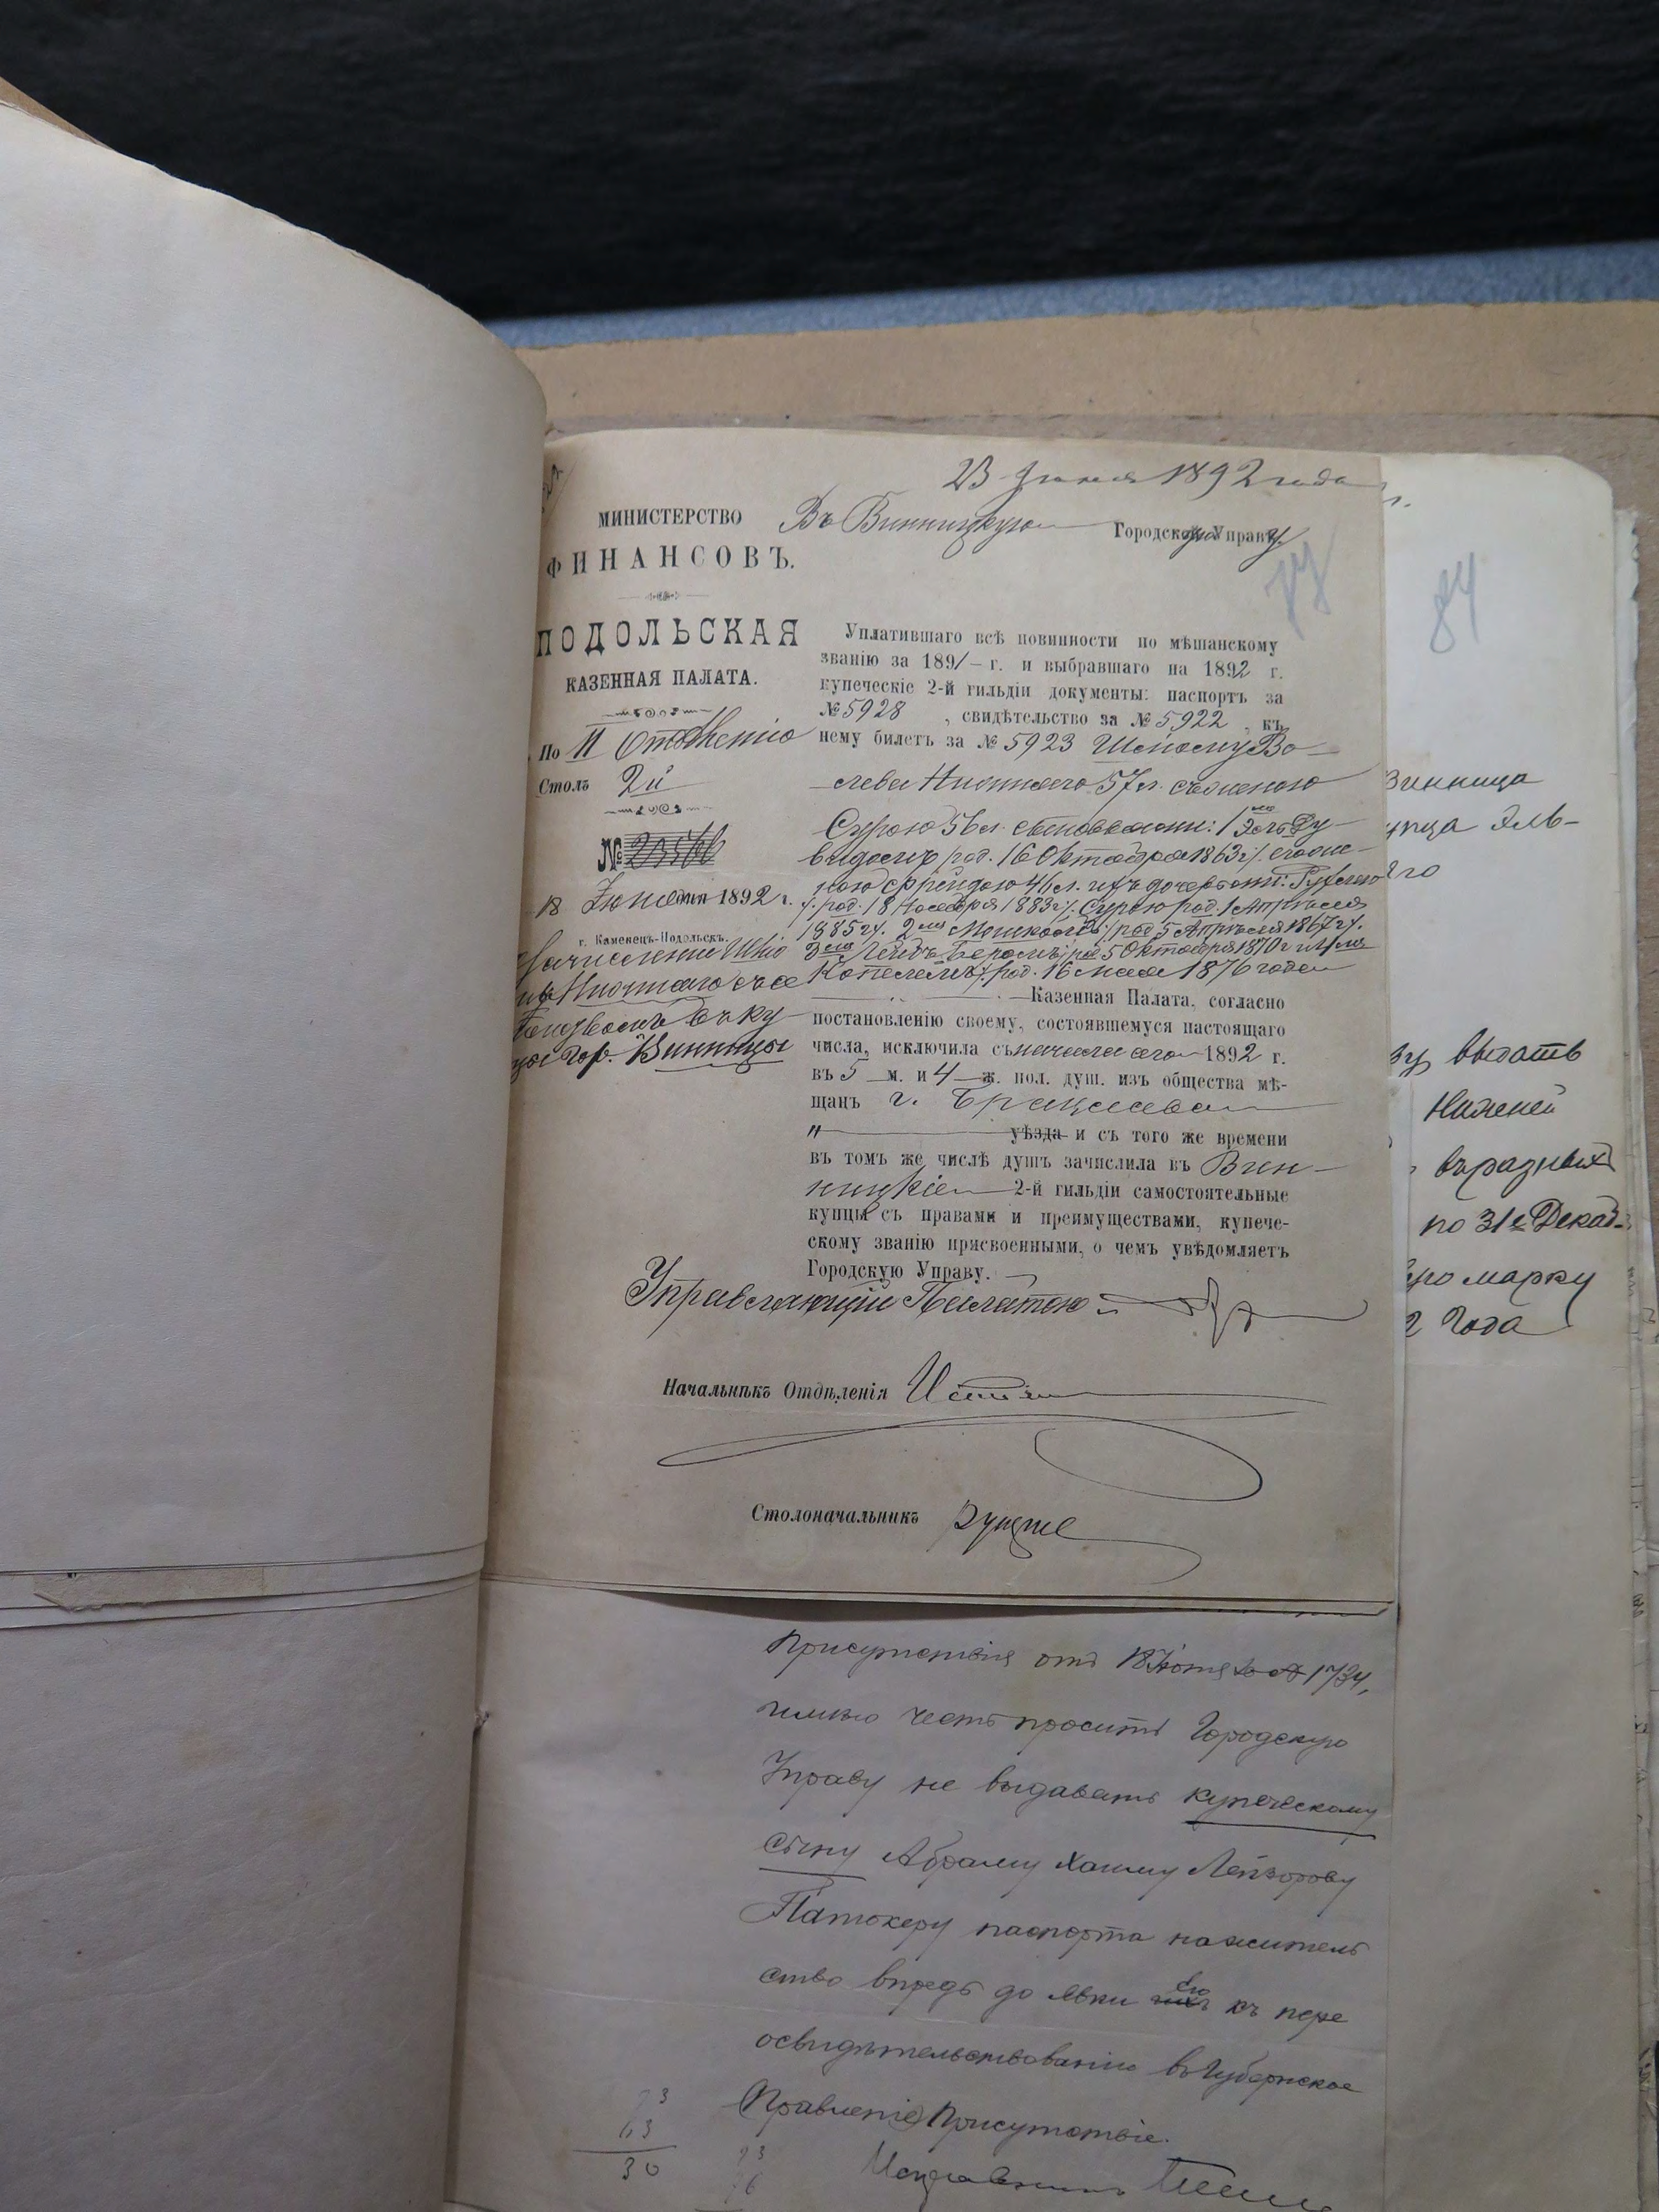 23 Июня 1892 года
МИНИСТЕРСТВО
ФИНАНСОВЪ.
ПОДОЛЬСКАЯ
КАЗЕННАЯ ПАЛАТА.
По II Отдѣленію
Столъ 2й
№
18 Іюня дня 1892 г.
г. Каменецъ-Подольскъ.
въ ку
гор. Винницы
Въ Винницкую Городскую Управу
Уплатившаго всѣ повинности по мѣщанскому
званію за 1891 г. и выбравшаго на 1892 г.
купеческіе 2-й гильдіи документы: паспортъ за
№ 5928, свидѣтельство за № 5922, къ
нему билетъ за № 5923 Шлiому Во-
57 л. съ женою
Сурою 56 л. сыновьями: 1 му
род. 16 Октября 1863 г. его же-
ною Фрейдою 46 л. ихъ дочерьми:
род. 18 Ноября 1883 г. Сурою род. 1 Апрѣля
1885 г. 2 мъ род. 5 Апрѣля 1867 г.
3 мъ Лейбъ Беромъ род. 5 Октября 1870 г. и 4 мъ
Копелемъ род. 16 мая 1876 года
Казенная Палата, согласно
постановленію своему, состоявшемуся настоящаго
числа, исключила съ начала сего 1892 г.
въ 5 м. и 4 ж. пол. душ. изъ общества мѣ-
щанъ г. Брацлава
" уѣзда и съ того же времени
въ томъ же числѣ душъ зачислила въ Вин-
ницкіе 2-й гильдіи самостоятельные
купцы съ правами и преимуществами, купече-
скому званію присвоенными, о чемъ увѣдомляетъ
Городскую Управу.
Управляющій Палатою
Начальникъ Отдѣленія
Столоначальникъ
84
Винница
упца Эль-
го
выдать
въ разныхъ
по 31е Декаб-
марку
2 года
Присутствія отъ 18 Іюня за № 1734,
имѣю честь просить Городскую
Управу не выдавать купеческому
сыну Абраму Хаиму Лейзорову
Патокеру паспорта на житель
ство впредь до явки его къ пере
освидѣтельствованію въ Губернское
Правленіе Присутствіе.
Исправникъ
63
30